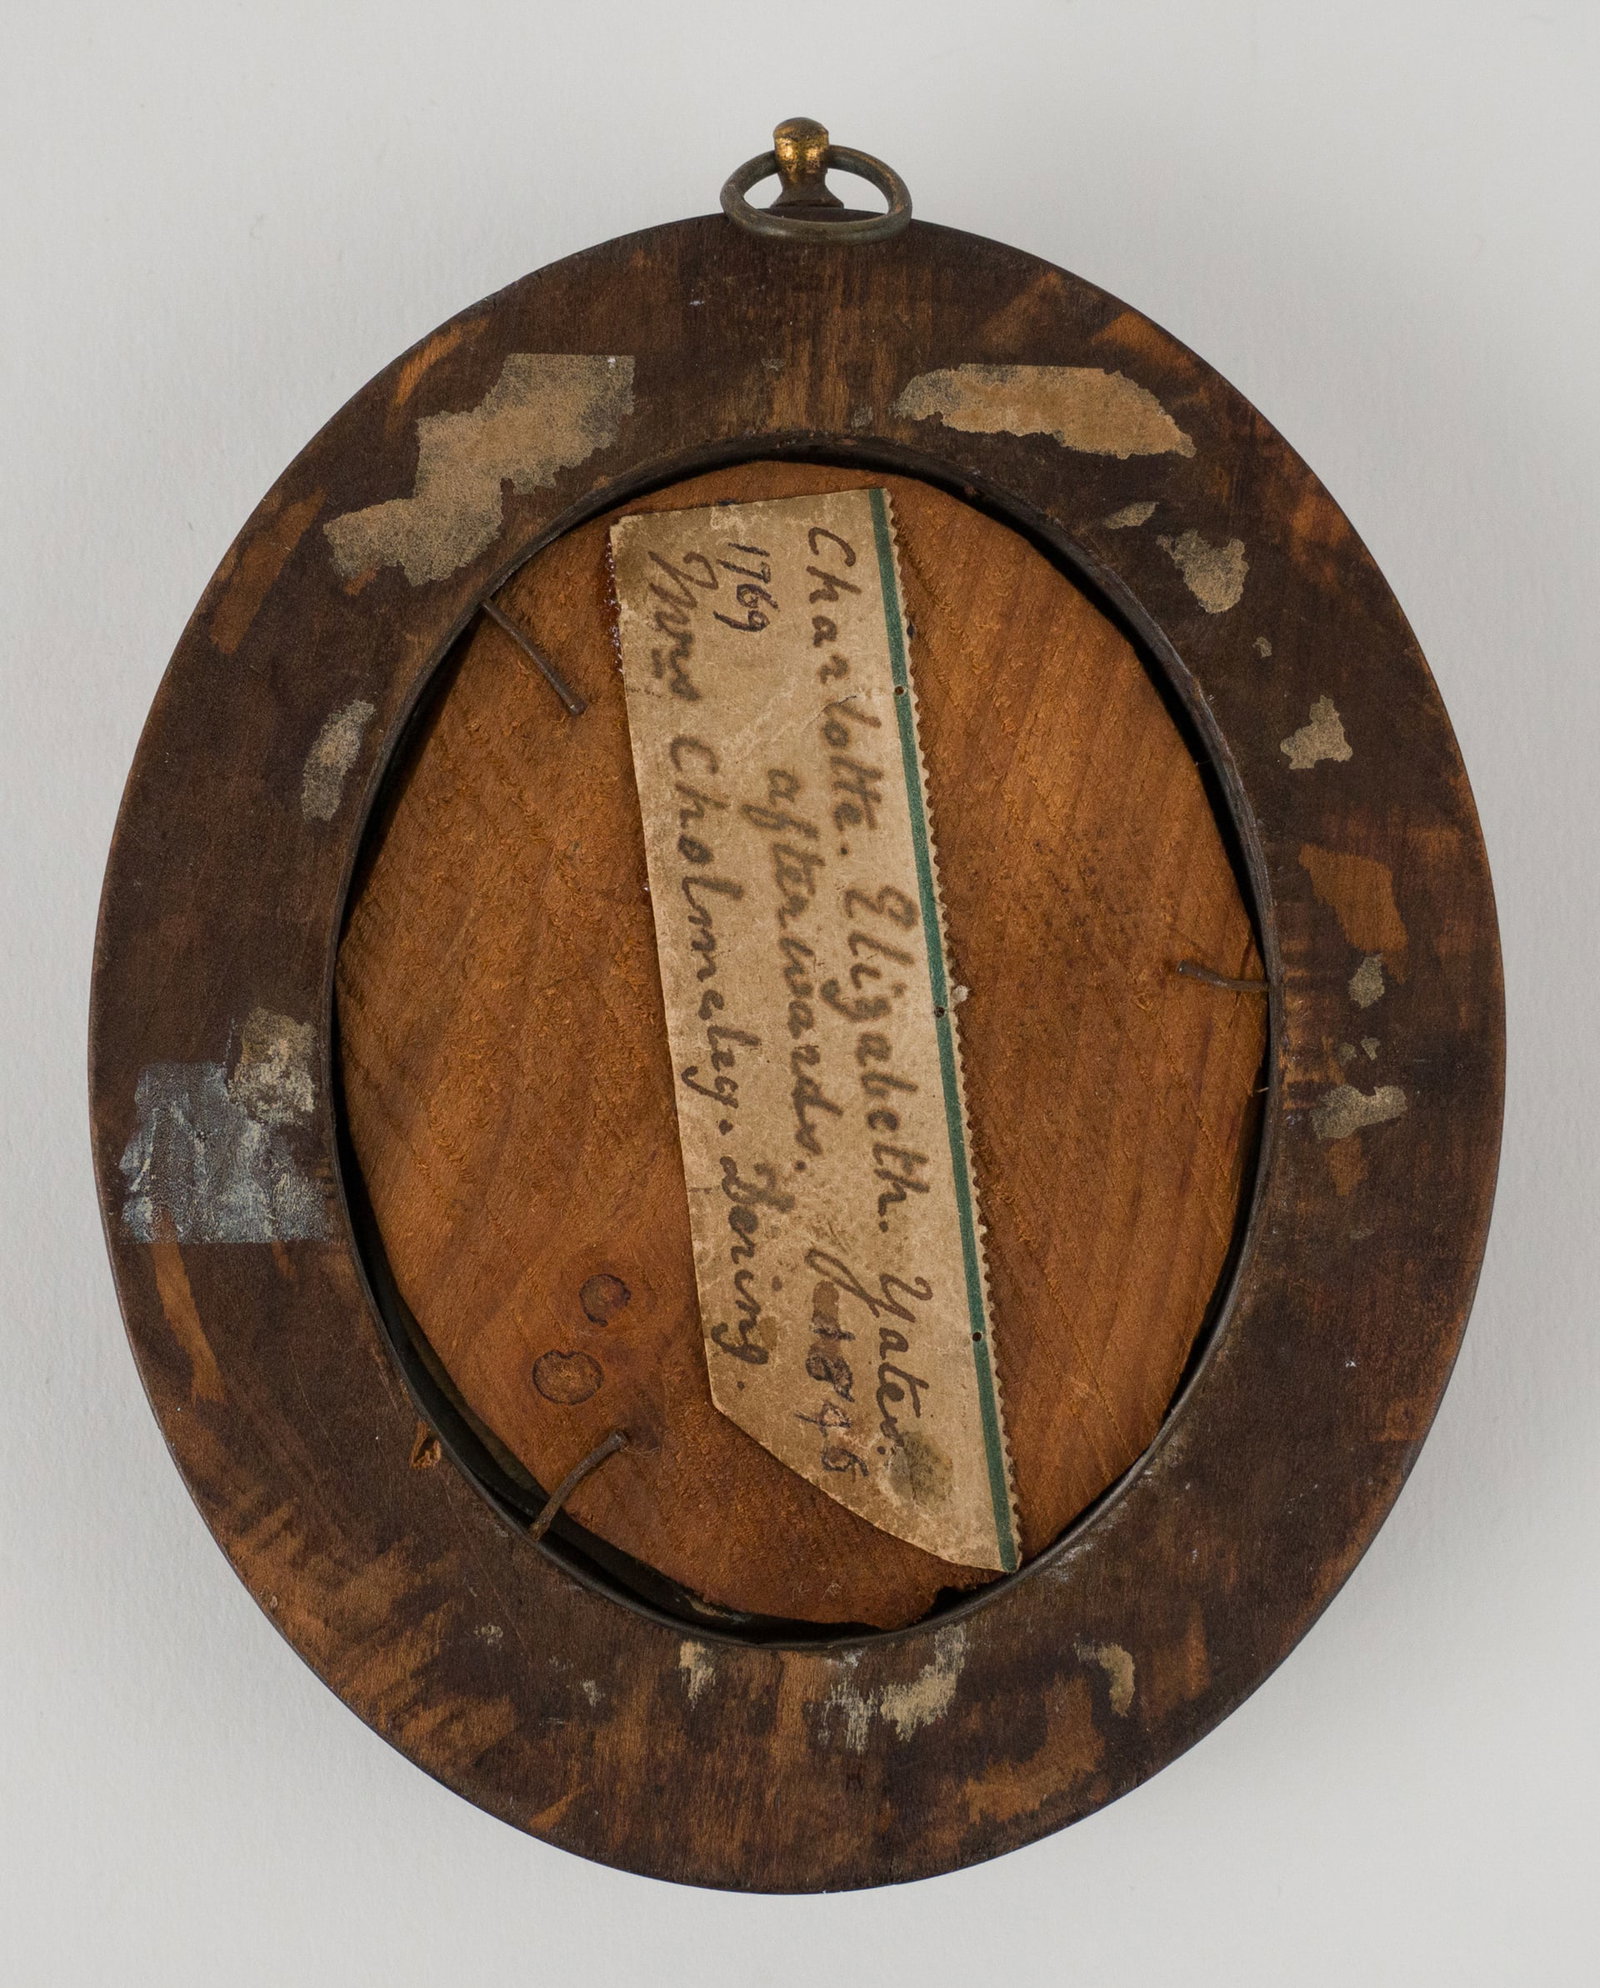 Charlotte. Elizabeth. Yates.
afterwards. 1846
1769
Mrs Cholmeley. Dering.